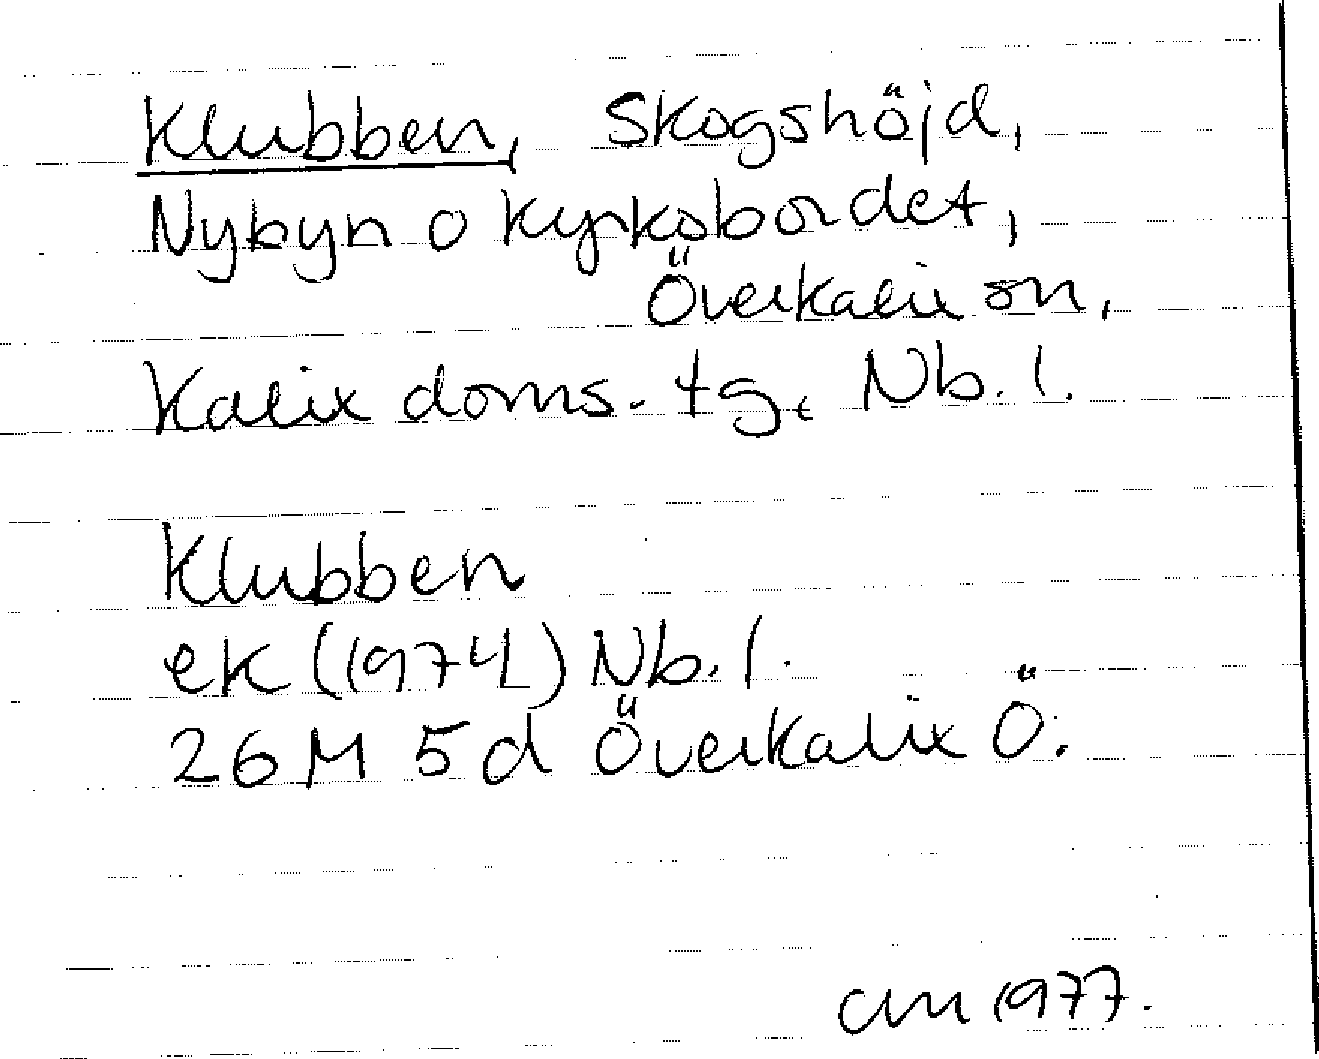 Klubben, Skogshöjd,
Nybyn o Kyrkobordet,
Överkalix sn,
Kalix doms. tg, Nb. l.
Klubben
ek (1974) Nb. l.
26 M 5 d Överkalix Ö.
CM 1977.